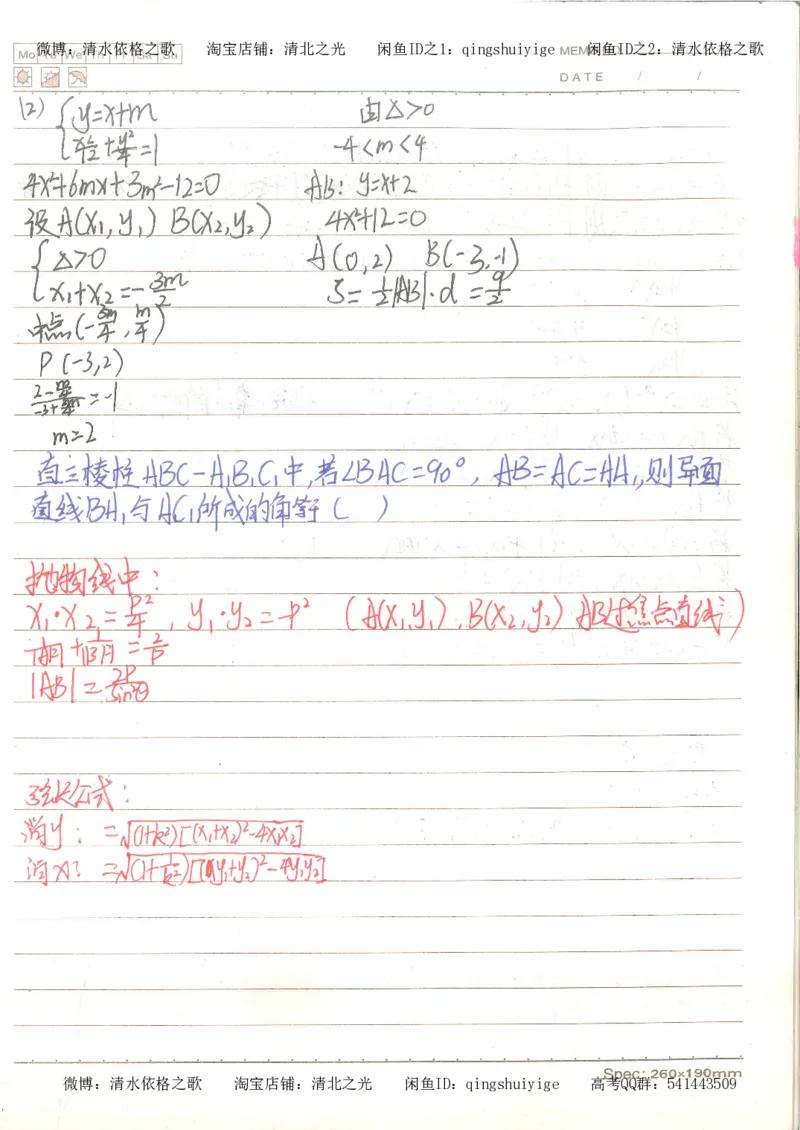 微博：清水依格之歌 淘宝店铺：清北之光 闲鱼ID之1：qingshuiyige 闲鱼ID之2：清水依格之歌
Mo Tu We Th Fr Sa Su
DATE / /
(2) {y=x+m
x²/12+y²/4=1
4x²+6mx+3m²-12=0
设A(x₁,y₁) B(x₂,y₂)
{△>0
x₁+x₂=-3m/2
中点(-3m/4,m/4)
P(-3,2)
=-1
m=2
由△>0
-4<m<4
AB: y=x+2
4x²+12=0
A(0,2) B(-3,-1)
S=1/2|AB|·d=9/2
直三棱柱ABC-A₁B₁C₁中,若∠BAC=90°, AB=AC=AA₁,则异面
直线BA₁与AC₁所成的角等于( )
抛物线中:
x₁·x₂=p²/4, y₁·y₂=-p² (A(x₁,y₁),B(x₂,y₂) AB过焦点直线)
1/|AF|+1/|BF|=2/p
|AB|=2p/sin²θ
弦长公式:
消y: =√(1+k²)[(x₁+x₂)²-4x₁x₂]
消x: =√(1+1/k²)[(y₁+y₂)²-4y₁y₂]
Spec: 260×190mm
微博：清水依格之歌 淘宝店铺：清北之光 闲鱼ID：qingshuiyige 高考QQ群：541443509